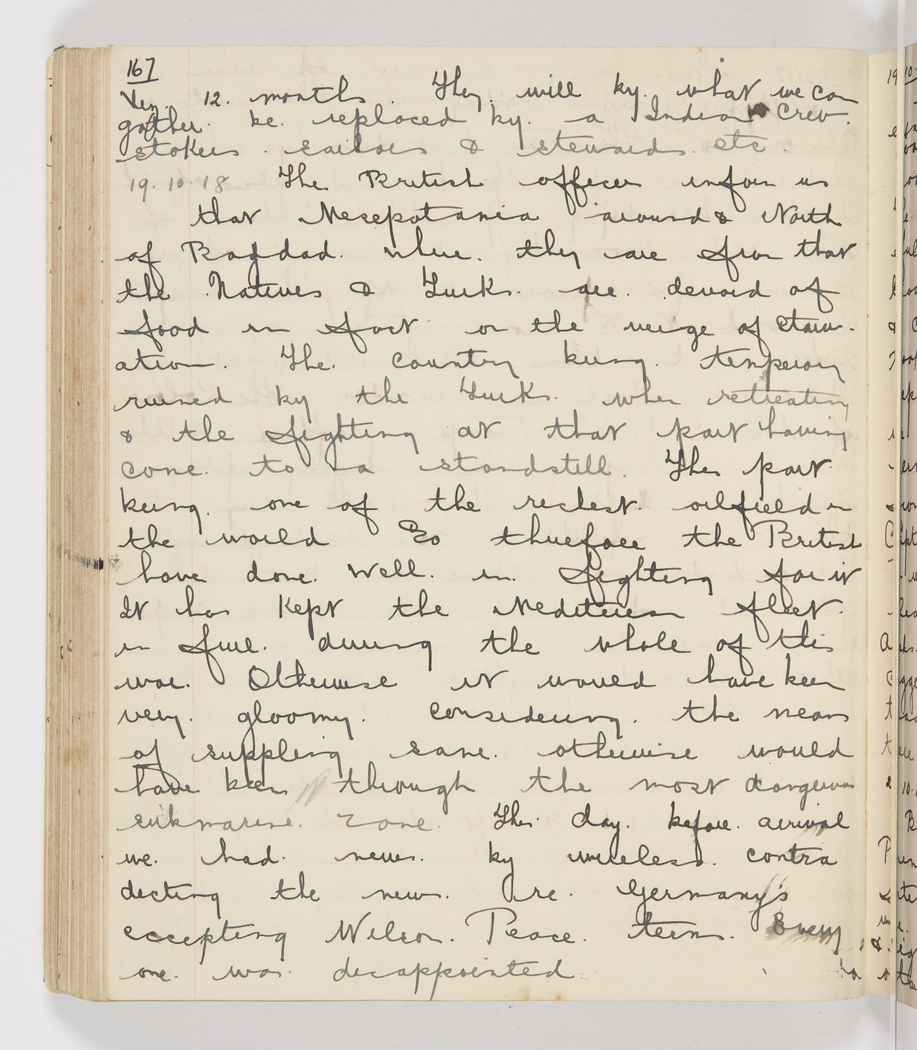 167
Very. 12. months. They will by. what we can
gather. be. replaced by. a Indian Crew.
stokers. sailors & stewards. etc.
19.10.18 The British officers inform us
that Mesepotamia around & North
of Bagdad. where. they are from that
the Natives & Turks. are. devoid of
food in fact. on the verge of starv-
ation. The. country being. temperory
ruined by the Turks. when retreating
& the fighting at that part having
come. to a standstill. This part.
being. one of the richest. oilfield in
the world So therefore the British
have done. well. in. fighting for it
It has kept the Mediteren fleet.
in fuel. during the whole of this
war. Otherwise it would have been
very. gloomy. considering. the means
of suppling same. otherwise would
have been through the most dangerous
submarine. zone. The day. before. arrival
we. had. news. by wireless. contra
decting the news. re. Germany's
eccepting Wilson. Peace. terms. Every
one. was. disappointed